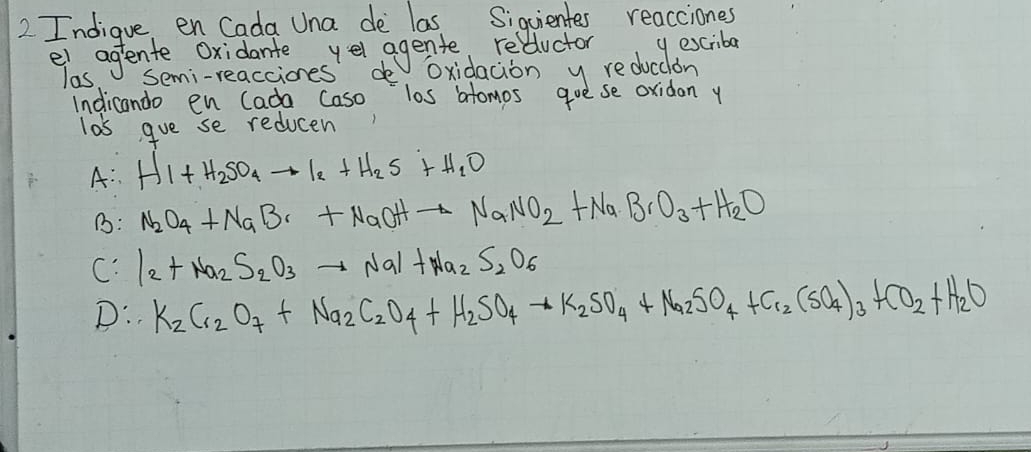 2 Indique en Cada Una de las Siquientes reacciones
el agente Oxidante y el agente reductor y escriba
las semi-reacciones de oxidación y reducción
Indicando en Cada Caso los átomos que se oxidan y
los que se reducen
A: HI + H₂SO₄ → I₂ + H₂S + H₂O
B: N₂O₄ + NaBr + NaOH → NaNO₂ + NaBrO₃ + H₂O
C: I₂ + Na₂S₂O₃ → NaI + Na₂S₂O₆
D: K₂Cr₂O₇ + Na₂C₂O₄ + H₂SO₄ → K₂SO₄ + Na₂SO₄ + Cr₂(SO₄)₃ + CO₂ + H₂O